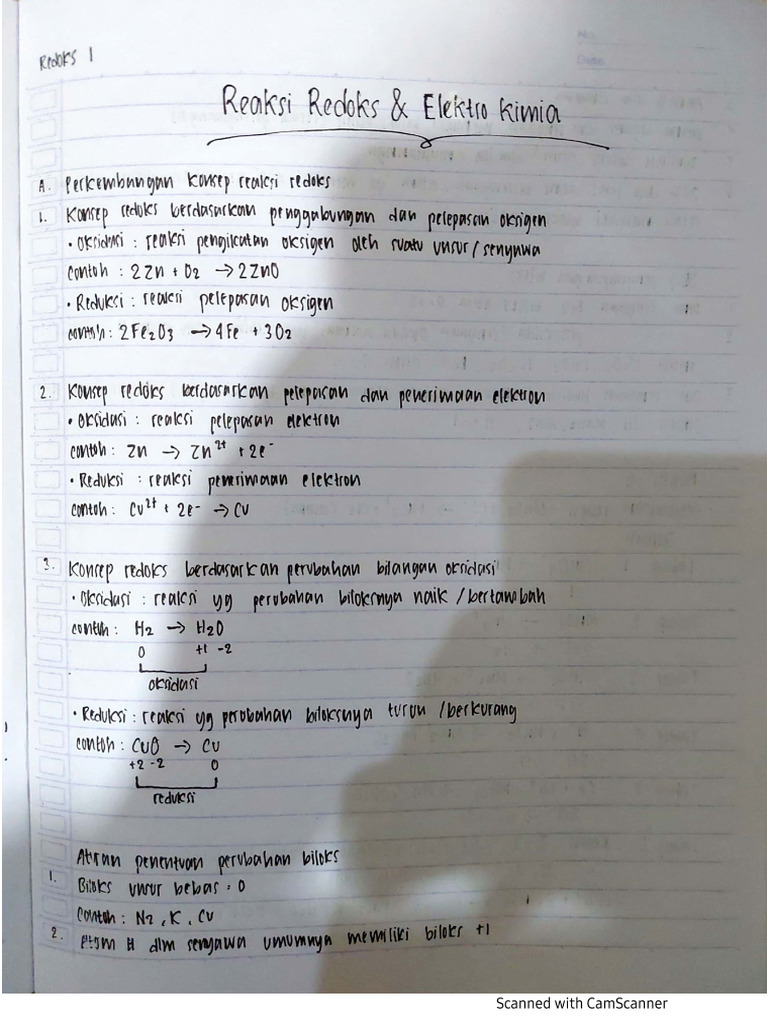 Redoks 1
No.
Date.
Reaksi Redoks & Elektro Kimia
A. Perkembangan Konsep reaksi redoks
1. Konsep redoks berdasarkan penggabungan dan pelepasan oksigen
• Oksidasi : reaksi pengikatan oksigen oleh suatu unsur / senyawa
Contoh : 2Zn + O₂ → 2ZnO
• Reduksi : reaksi pelepasan oksigen
contoh : 2Fe₂O₃ → 4Fe + 3O₂
2. Konsep redoks berdasarkan pelepasan dan penerimaan elektron
• Oksidasi : reaksi pelepasan elektron
contoh : Zn → Zn²⁺ + 2e⁻
• Reduksi : reaksi penerimaan elektron
contoh : Cu²⁺ + 2e⁻ → Cu
3. Konsep redoks berdasarkan perubahan bilangan oksidasi
• Oksidasi : reaksi yg perubahan biloksnya naik / bertambah
contoh : H₂ → H₂O
0 +1 -2
oksidasi
• Reduksi : reaksi yg perubahan biloksnya turun / berkurang
contoh : CuO → Cu
+2 -2 0
reduksi
Aturan penentuan perubahan biloks
1. Biloks unsur bebas = 0
Contoh : N₂, K, Cu
2. Atom H dlm senyawa umumnya memiliki biloks +1
Scanned with CamScanner